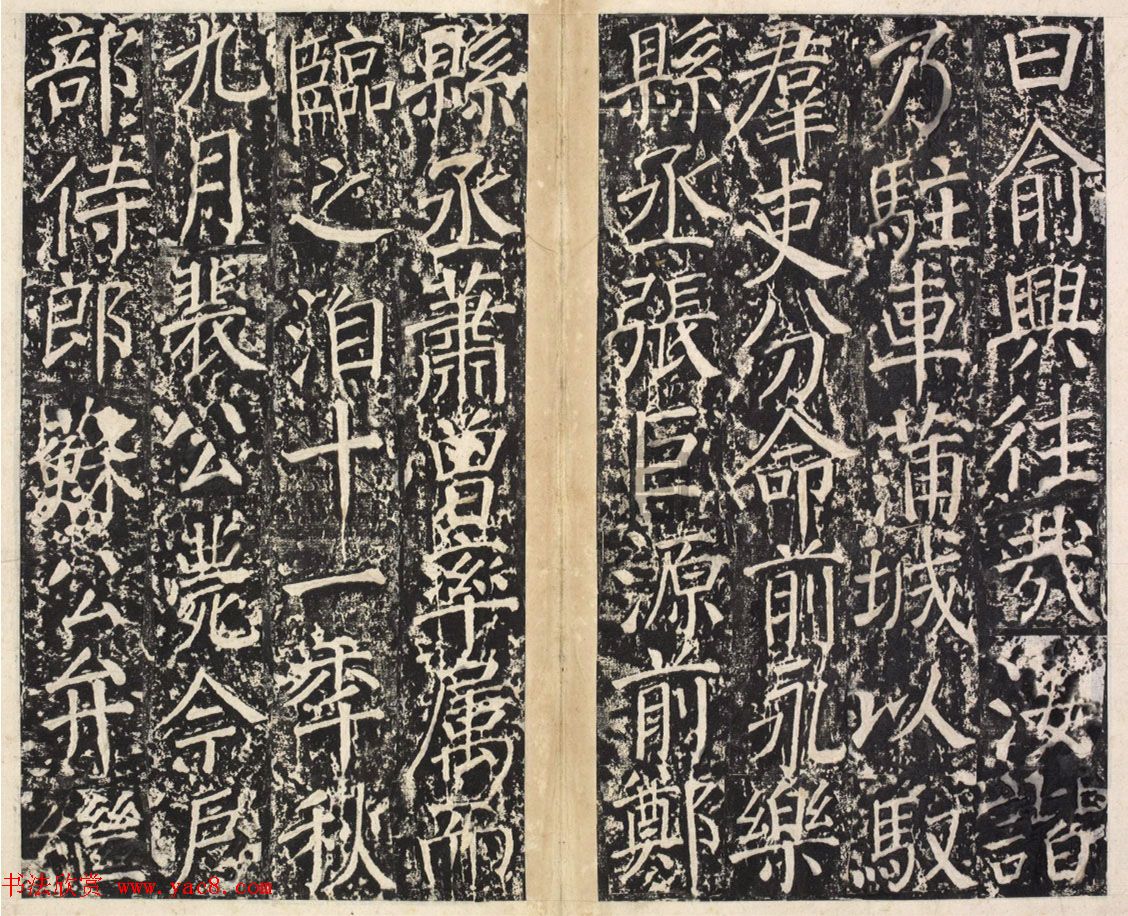 曰俞興往哉汝諧
乃駐車蒲城以馭
羣吏分命前永樂
縣丞張巨源前鄭
縣丞蕭曾率属而
臨之洎十一年秋
九月裴公薨今户
部侍郎蘇公弁繼
书法欣赏 www.yac8.com